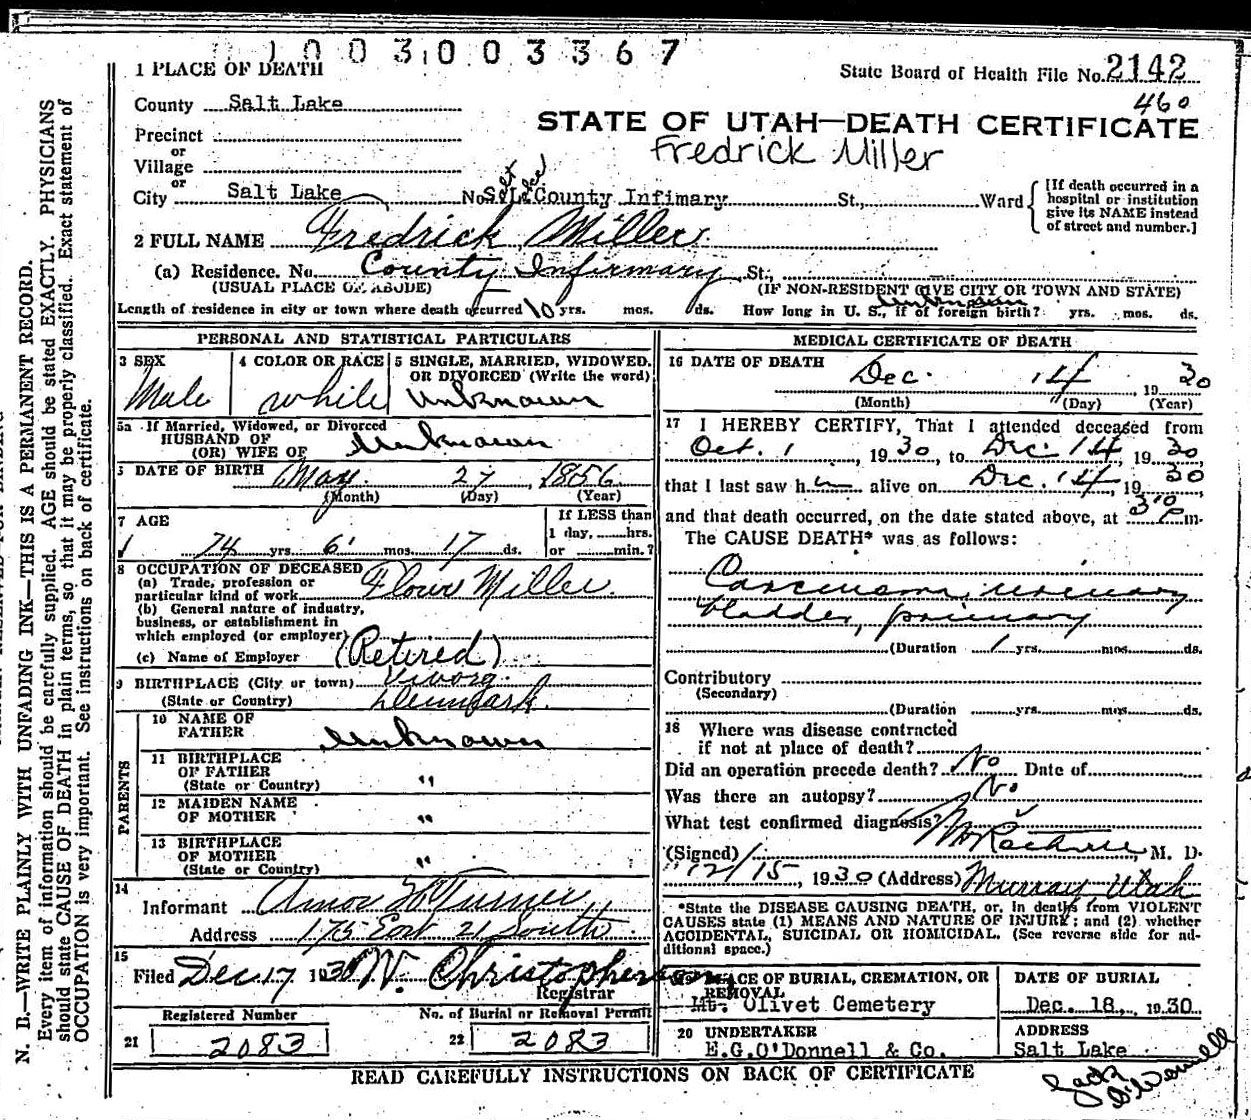 1003003367
1 PLACE OF DEATH
State Board of Health File No. 2142
County Salt Lake
460
STATE OF UTAH—DEATH CERTIFICATE
Precinct
Fredrick Miller
or
Village
or
City Salt Lake No. Salt Lake County Infimary St., Ward
[If death occurred in a hospital or institution give its NAME instead of street and number.]
2 FULL NAME Fredrick Miller
(a) Residence. No. County Infirmary St.,
(USUAL PLACE OF ABODE) (IF NON-RESIDENT GIVE CITY OR TOWN AND STATE)
Length of residence in city or town where death occurred 10 yrs. mos. ds. How long in U. S., if of foreign birth? Unknown yrs. mos. ds.
PERSONAL AND STATISTICAL PARTICULARS
3 SEX Male
4 COLOR OR RACE White
5 SINGLE, MARRIED, WIDOWED, OR DIVORCED (Write the word) Unknown
5a If Married, Widowed, or Divorced
HUSBAND OF
(OR) WIFE OF Unknown
DATE OF BIRTH May 27, 1856
(Month) (Day) (Year)
7 AGE
74 yrs. 6 mos. 17 ds.
If LESS than
1 day, hrs.
or min.?
8 OCCUPATION OF DECEASED
(a) Trade, profession or
particular kind of work Flour Miller
(b) General nature of industry,
business, or establishment in
which employed (or employer)
(c) Name of Employer (Retired)
9 BIRTHPLACE (City or town) Viborg
(State or Country) Denmark
PARENTS
10 NAME OF
FATHER Unknown
11 BIRTHPLACE
OF FATHER "
(State or Country)
12 MAIDEN NAME
OF MOTHER "
13 BIRTHPLACE
OF MOTHER "
(State or Country)
14
Informant Amos Turner
Address 175 East 21 South
15
Filed Dec 17 1930 W. Christopherson
Registrar
Registered Number
21 2083
No. of Burial or Removal Permit
22 2083
MEDICAL CERTIFICATE OF DEATH
16 DATE OF DEATH
Dec. 14, 1930
(Month) (Day) (Year)
17 I HEREBY CERTIFY, That I attended deceased from
Oct. 1, 1930, to Dec 14, 1930
that I last saw h im alive on Dec. 14, 1930,
and that death occurred, on the date stated above, at 3:10 P m.
The CAUSE DEATH* was as follows:
Carcinoma, urinary
bladder, primary
(Duration 1 yrs. mos. ds.
Contributory
(Secondary)
(Duration yrs. mos. ds.
18 Where was disease contracted
if not at place of death?
Did an operation precede death? No Date of
Was there an autopsy? No
What test confirmed diagnosis?
(Signed) M. D.
12/15, 1930 (Address) Murray Utah
*State the DISEASE CAUSING DEATH, or, in deaths from VIOLENT
CAUSES state (1) MEANS AND NATURE OF INJURY; and (2) whether
ACCIDENTAL, SUICIDAL OR HOMICIDAL. (See reverse side for ad-
ditional space.)
19 PLACE OF BURIAL, CREMATION, OR
REMOVAL
Mt. Olivet Cemetery
DATE OF BURIAL
Dec. 18, 1930
20 UNDERTAKER
E.G.O'Donnell & Co.
ADDRESS
Salt Lake
Jack O'Donnell
READ CAREFULLY INSTRUCTIONS ON BACK OF CERTIFICATE
N. B.—WRITE PLAINLY WITH UNFADING INK—THIS IS A PERMANENT RECORD.
Every item of information should be carefully supplied. AGE should be stated EXACTLY. PHYSICIANS
should state CAUSE OF DEATH in plain terms, so that it may be properly classified. Exact statement of
OCCUPATION is very important. See instructions on back of certificate.